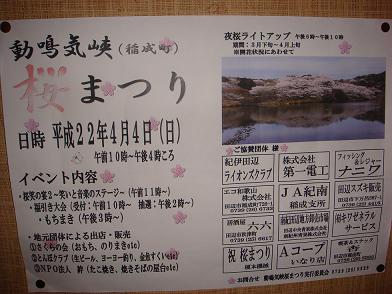 動鳴気峡(稲成町)
桜まつり
日時 平成22年4月4日(日)
午前10時～午後4時ころ
イベント内容
・桜笑の宴2～笑いと音楽のステージ～(午前11時～)
・福引き大会(受付:午前10時～ 抽選:午後2時～)
・もちまき(午後3時～)
・地元団体による出店・販売
①さくらの会(おもち、のりまきetc)
②とんぼクラブ(生ビール、ヨーヨー釣り、金魚すくいetc)
③NPO法人 絆(たこ焼き、焼きそばの屋台etc)
夜桜ライトアップ 午後6時～午後10時
期間:3月下旬～4月上旬
※開花状況にあわせて
ご協賛団体 様
紀伊田辺
ライオンズクラブ
株式会社
第一電工
フィッシング
&レジャー
ナニワ
エコ和歌山
株式会社
JA紀南
稲成支所
田辺スズキ販売
居酒屋
六六
㈲キリゼネラル
サービス
祝 桜まつり
Aコープ
いなり店
お問合せ 動鳴気峡桜まつり実行委員会